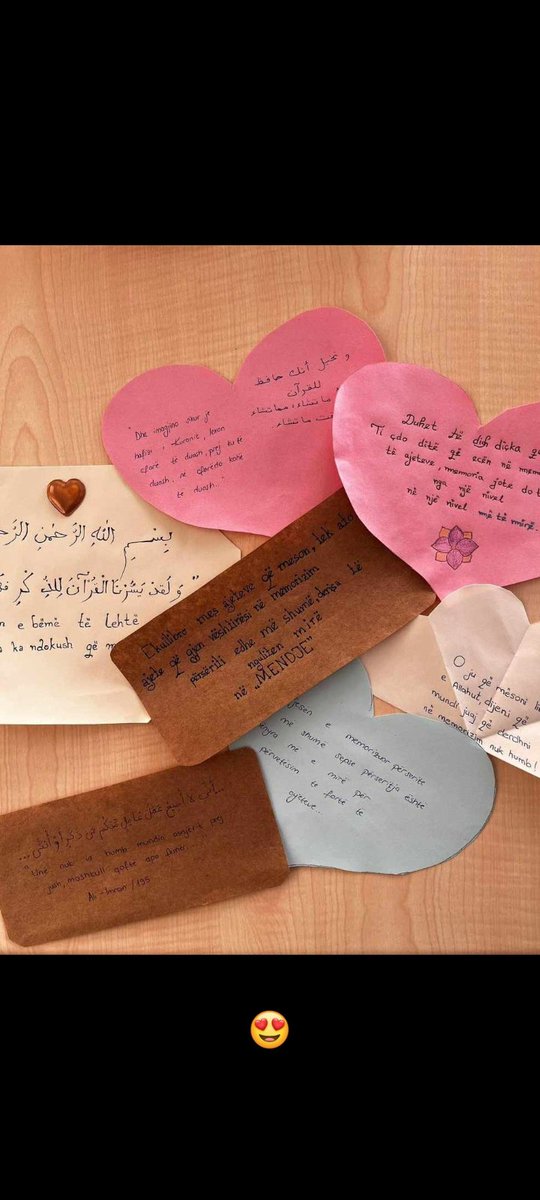 و تخيل أنك حافظ
للقرآن
ما تشاء، مما تشاء
ما تشاء
"Dhe imagjino sikur je
hafizi i Kuranit, lexon
çfarë të duash, prej ku të
duash, në çfarëdo kohë
të duash."
Duhet të dish diçka
Ti çdo ditë që ecën në
të ajeteve, memoria jote do të
nga një nivel
në një nivel më të mirë.
بسم الله الرحمن
وَلَقَدْ يَسَّرْنَا الْقُرْآنَ لِلذِّكْرِ
e bëmë të lehtë
ka ndokush që
Ekuilibro mes ajeteve që mëson, tek ato
ajete që gjen vështirësi në memorizim
përsëriti edhe më shumë, derisa të
ngulitën mirë
në "MENDJE"
O ju që mësoni
e Allahut, dijeni që
mundi juaj që derdhni
në memorizim nuk humb!
e memorizuar përsërite
më shumë sepse përsëritja është
më e mirë për
përvetësim të fortë të
ajeteve...
...أني لا أضيع عمل عامل منكم من ذكر أو أنثى...
"Unë nuk ia humb mundin asnjërit prej
jush, mashkull qoftë apo femër
Ali-Imran / 195
😍